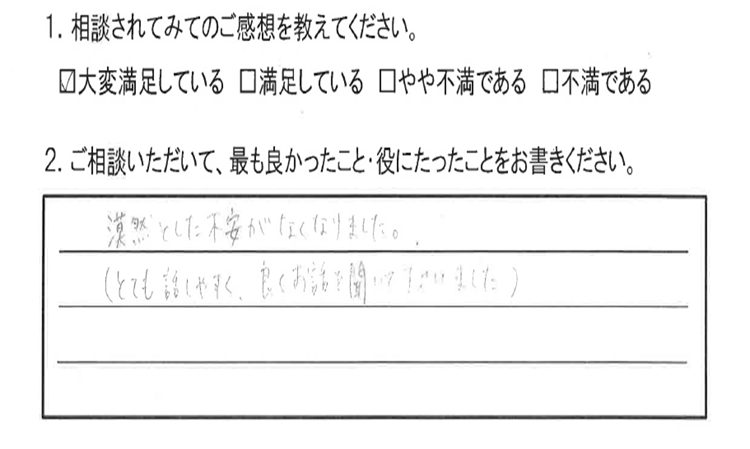 1. 相談されてみてのご感想を教えてください。
☑大変満足している □満足している □やや不満である □不満である
2. ご相談いただいて、最も良かったこと・役にたったことをお書きください。
漠然とした不安がなくなりました。
(とても話しやすく、良くお話を聞いて下さいました)